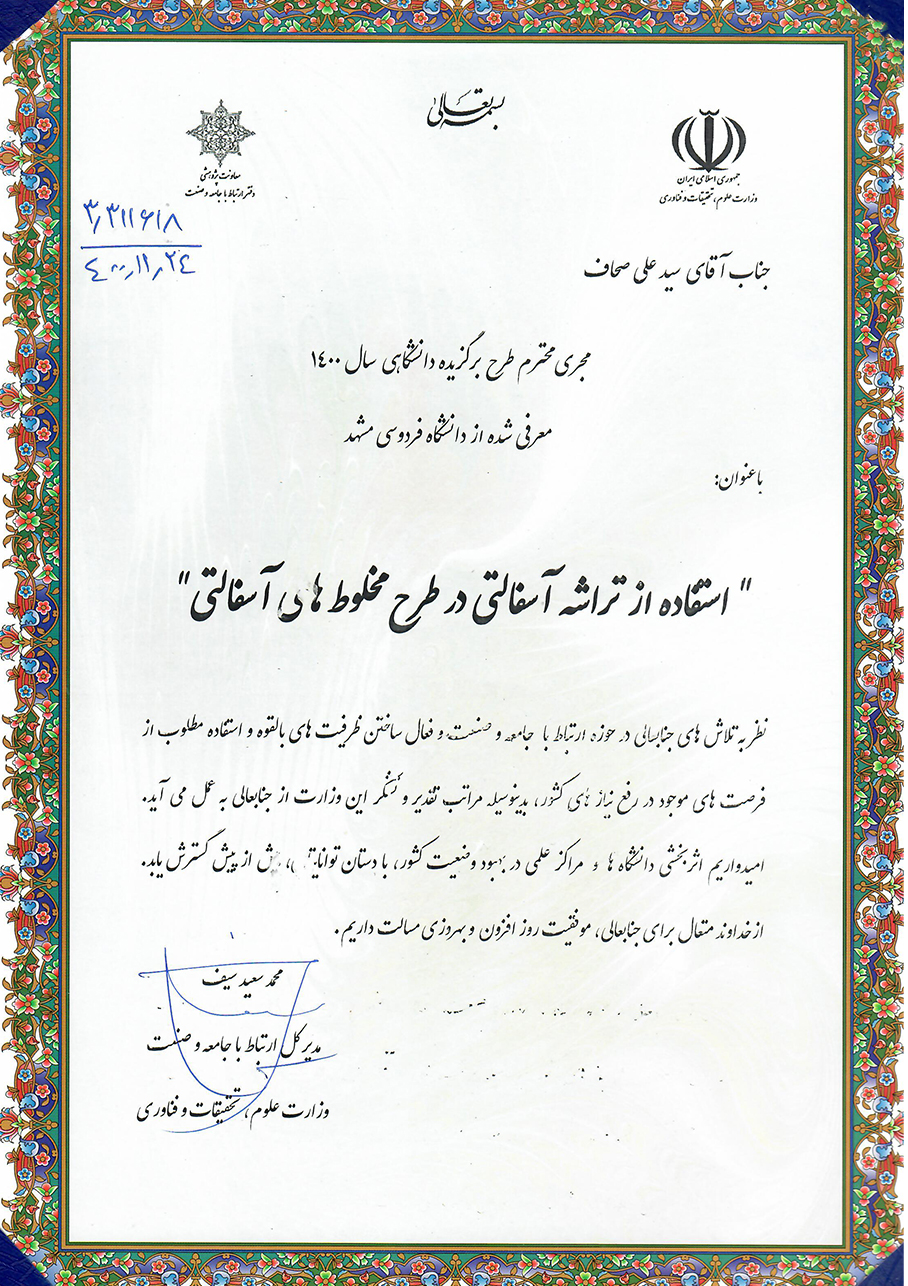 بسمه تعالی
جمهوری اسلامی ایران
وزارت علوم، تحقیقات و فناوری
معاونت پژوهشی
دفتر ارتباط با جامعه و صنعت
۳/۳۱۱۶۱۸
۴۰۰/۱۱/۲۴
جناب آقای سید علی صحاف
مجری محترم طرح برگزیده دانشگاهی سال ۱۴۰۰
معرفی شده از دانشگاه فردوسی مشهد
با عنوان:
" استفاده از تراشه آسفالتی در طرح مخلوط های آسفالتی "
نظر به تلاش های جنابعالی در حوزه ارتباط با جامعه و صنعت و فعال ساختن ظرفیت های بالقوه و استفاده مطلوب از
فرصت های موجود در رفع نیاز های کشور، بدینوسیله مراتب تقدیر و تشکر این وزارت از جنابعالی به عمل می آید.
امیدواریم اثربخشی دانشگاه ها و مراکز علمی در بهبود وضعیت کشور، با دستان از پیش گسترش یابد.
از خداوند متعال برای جنابعالی، موفقیت روز افزون و بهروزی مسالت داریم.
محمد سعید سیف
مدیر کل ارتباط با جامعه و صنعت
وزارت علوم، تحقیقات و فناوری